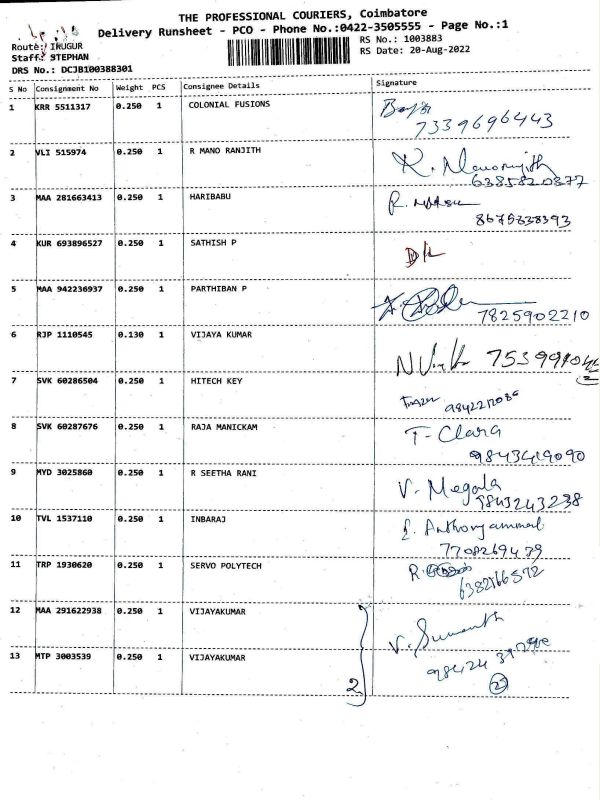 THE PROFESSIONAL COURIERS, Coimbatore
Delivery Runsheet - PCO - Phone No.:0422-3505555 - Page No.:1
Route: IRUGUR
RS No.: 1003883
Staff: STEPHAN
RS Date: 20-Aug-2022
DRS No.: DCJB100388301
S No Consignment No Weight PCS Consignee Details Signature
1 KRR 5511317 0.250 1 COLONIAL FUSIONS
7339696443
2 VLI 515974 0.250 1 R MANO RANJITH R. Manoranjith
6385820877
3 MAA 281663413 0.250 1 HARIBABU
8675838393
4 KUR 693896527 0.250 1 SATHISH P D/L
5 MAA 942236937 0.250 1 PARTHIBAN P
7825902210
6 RJP 1110545 0.130 1 VIJAYA KUMAR
7 SVK 60286504 0.250 1 HITECH KEY
8 SVK 60287676 0.250 1 RAJA MANICKAM T- Clara
9843419090
9 MYD 3025860 0.250 1 R SEETHA RANI V. Megala
9843243238
10 TVL 1537110 0.250 1 INBARAJ Anthonyammal
7708269479
11 TRP 1930620 0.250 1 SERVO POLYTECH R.
6382166572
12 MAA 291622938 0.250 1 VIJAYAKUMAR V. Sumanth
13 MTP 3003539 0.250 1 VIJAYAKUMAR
2 2